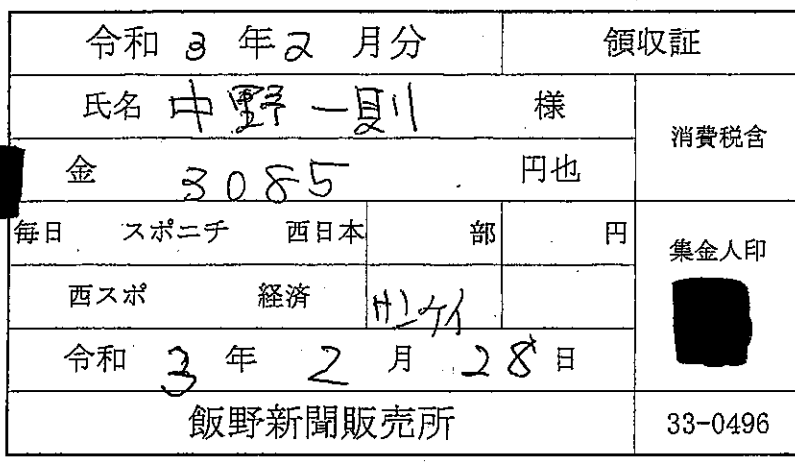 令和 3 年 2 月分 領収証
氏名 中野 一則 様
消費税含
金 3085 円也
毎日 スポニチ 西日本 部 円
集金人印
西スポ 経済 サンケイ
令和 3 年 2 月 28 日
飯野新聞販売所 33-0496